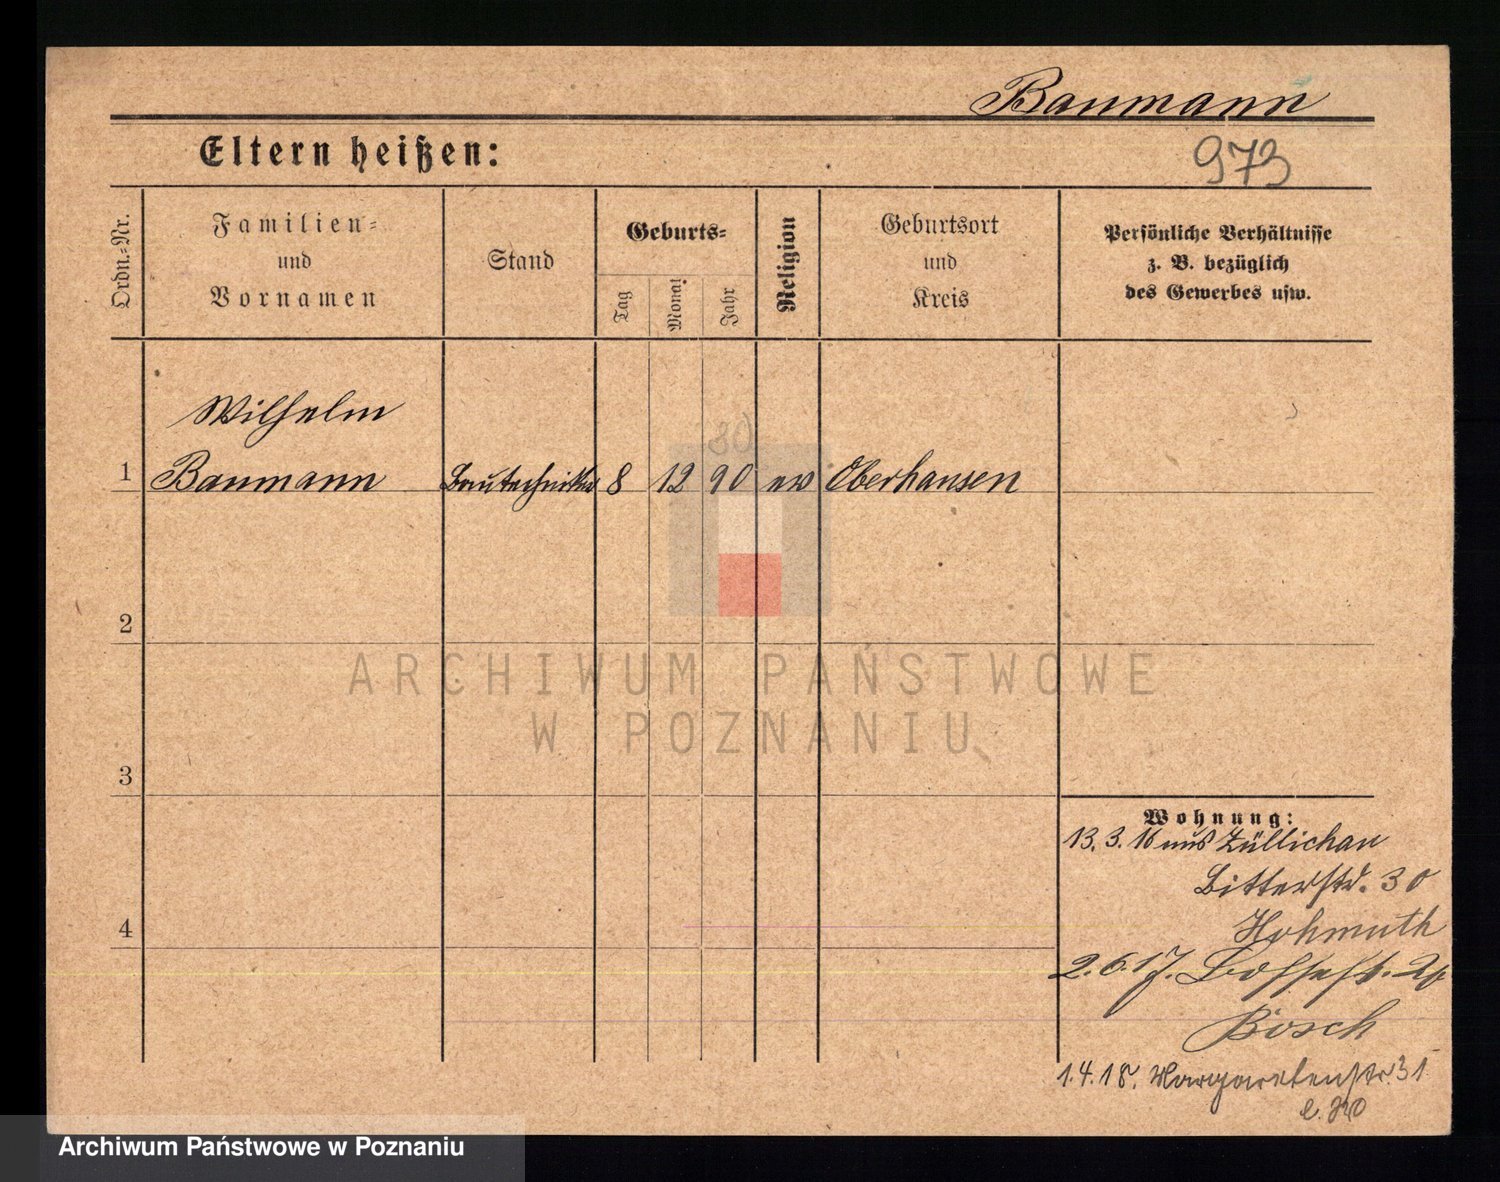 Baumann
Eltern heißen:
973
Ordn.-Nr.
Familien-
und
Vornamen
Stand
Geburts-
Tag
Monat
Jahr
Religion
Geburtsort
und
Kreis
Persönliche Verhältnisse
z. B. bezüglich
des Gewerbes usw.
80
Wilhelm
1 Baumann Bautechniker 8 12 90 ev Oberhausen
2
ARCHIWUM PAŃSTWOWE
W POZNANIU
3
Wohnung:
13. 3. 16 aus Züllichau
Bitterstr. 30
4
Hohmuth
2. 6. 17.
Bösch
1. 4. 18. Margaretenstr. 31
Archiwum Państwowe w Poznaniu